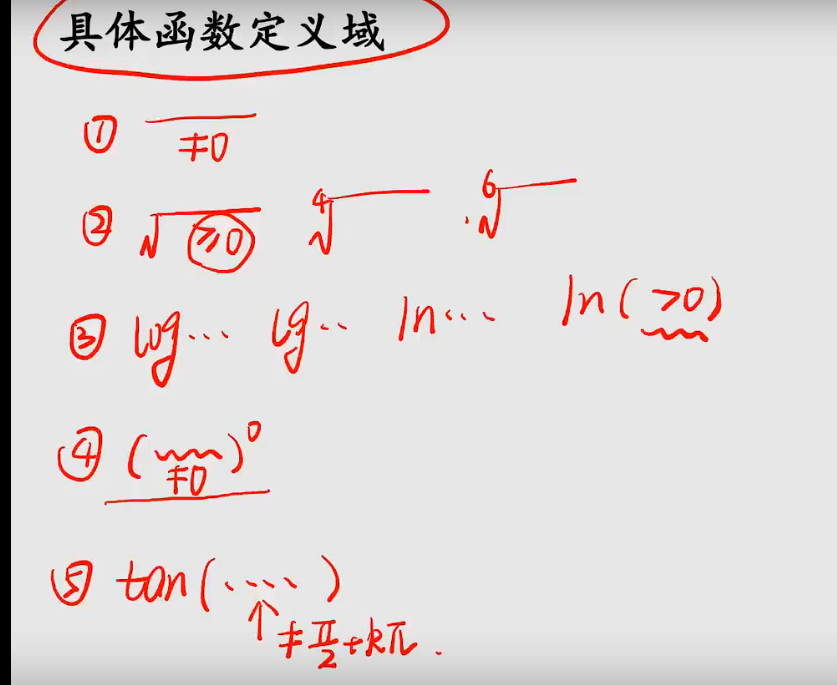 具体函数定义域
① ≠0
② √≥0 ⁴√ ⁶√
③ log… lg.. ln… ln(>0)
④ ( ≠0 )⁰
⑤ tan(....)
↑ ≠π/2+kπ.